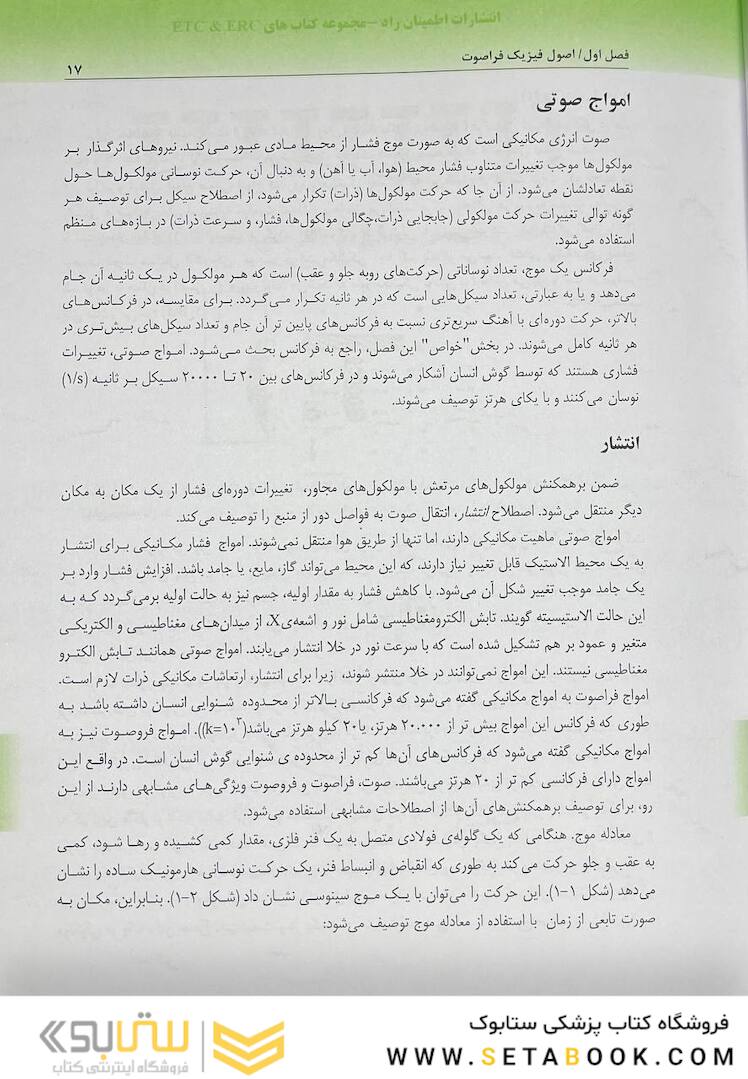 انتشارات اطمینان راد -مجموعه کتاب های ETC & ERC
فصل اول/ اصول فیزیک فراصوت
۱۷
امواج صوتی
صوت انرژی مکانیکی است که به صورت موج فشار از محیط مادی عبور می‌کند. نیروهای اثرگذار بر
مولکول‌ها موجب تغییرات متناوب فشار محیط (هوا، آب یا آهن) و به دنبال آن، حرکت نوسانی مولکول‌ها حول
نقطه تعادلشان می‌شود. از آن جا که حرکت مولکول‌ها (ذرات) تکرار می‌شود، از اصطلاح سیکل برای توصیف هر
گونه توالی تغییرات حرکت مولکولی (جابجایی ذرات،چگالی مولکول‌ها، فشار، و سرعت ذرات) در بازه‌های منظم
استفاده می‌شود.
فرکانس یک موج، تعداد نوساناتی (حرکت‌های روبه جلو و عقب) است که هر مولکول در یک ثانیه آن جام
می‌دهد و یا به عبارتی، تعداد سیکل‌هایی است که در هر ثانیه تکرار می‌گردد. برای مقایسه، در فرکانس‌های
بالاتر، حرکت دوره‌ای با آهنگ سریع‌تری نسبت به فرکانس‌های پایین تر آن جام و تعداد سیکل‌های بیش‌تری در
هر ثانیه کامل می‌شوند. در بخش"خواص" این فصل، راجع به فرکانس بحث می‌شود. امواج صوتی، تغییرات
فشاری هستند که توسط گوش انسان آشکار می‌شوند و در فرکانس‌های بین ۲۰ تا ۲۰۰۰۰ سیکل بر ثانیه (۱/s)
نوسان می‌کنند و با یکای هرتز توصیف می‌شوند.
انتشار
ضمن برهمکنش مولکول‌های مرتعش با مولکول‌های مجاور، تغییرات دوره‌ای فشار از یک مکان به مکان
دیگر منتقل می‌شود. اصطلاح انتشار، انتقال صوت به فواصل دور از منبع را توصیف می‌کند.
امواج صوتی ماهیت مکانیکی دارند، اما تنها از طریق هوا منتقل نمی‌شوند. امواج فشار مکانیکی برای انتشار
به یک محیط الاستیک قابل تغییر نیاز دارند، که این محیط می‌تواند گاز، مایع، یا جامد باشد. افزایش فشار وارد بر
یک جامد موجب تغییر شکل آن می‌شود. با کاهش فشار به مقدار اولیه، جسم نیز به حالت اولیه برمی‌گردد که به
این حالت الاستیسیته گویند. تابش الکترومغناطیسی شامل نور و اشعه‌یX، از میدان‌های مغناطیسی و الکتریکی
متغیر و عمود بر هم تشکیل شده است که با سرعت نور در خلا انتشار می‌یابند. امواج صوتی همانند تابش الکترو
مغناطیسی نیستند. این امواج نمی‌توانند در خلا منتشر شوند، زیرا برای انتشار، ارتعاشات مکانیکی ذرات لازم است.
امواج فراصوت به امواج مکانیکی گفته می‌شود که فرکانسی بالاتر از محدوده شنوایی انسان داشته باشد به
طوری که فرکانس این امواج بیش تر از ۲۰.۰۰۰ هرتز، یا۲۰ کیلو هرتز می‌باشد(k=۱۰³)). امواج فروصوت نیز به
امواج مکانیکی گفته می‌شود که فرکانس‌های آن‌ها کم تر از محدوده ی شنوایی گوش انسان است. در واقع این
امواج دارای فرکانسی کم تر از ۲۰ هرتز می‌باشند. صوت، فراصوت و فروصوت ویژگی‌های مشابهی دارند از این
رو، برای توصیف برهمکنش‌های آن‌ها از اصطلاحات مشابهی استفاده می‌شود.
معادله موج. هنگامی که یک گلوله‌ی فولادی متصل به یک فنر فلزی، مقدار کمی کشیده و رها شود، کمی
به عقب و جلو حرکت می‌کند به طوری که انقباض و انبساط فنر، یک حرکت نوسانی هارمونیک ساده را نشان
می‌دهد (شکل ۱-۱). این حرکت را می‌توان با یک موج سینوسی نشان داد (شکل ۲-۱). بنابراین، مکان به
صورت تابعی از زمان با استفاده از معادله موج توصیف می‌شود:
فروشگاه کتاب پزشکی ستابوک
WWW.SETABOOK.COM
ستابوک
فروشگاه اینترنتی کتاب